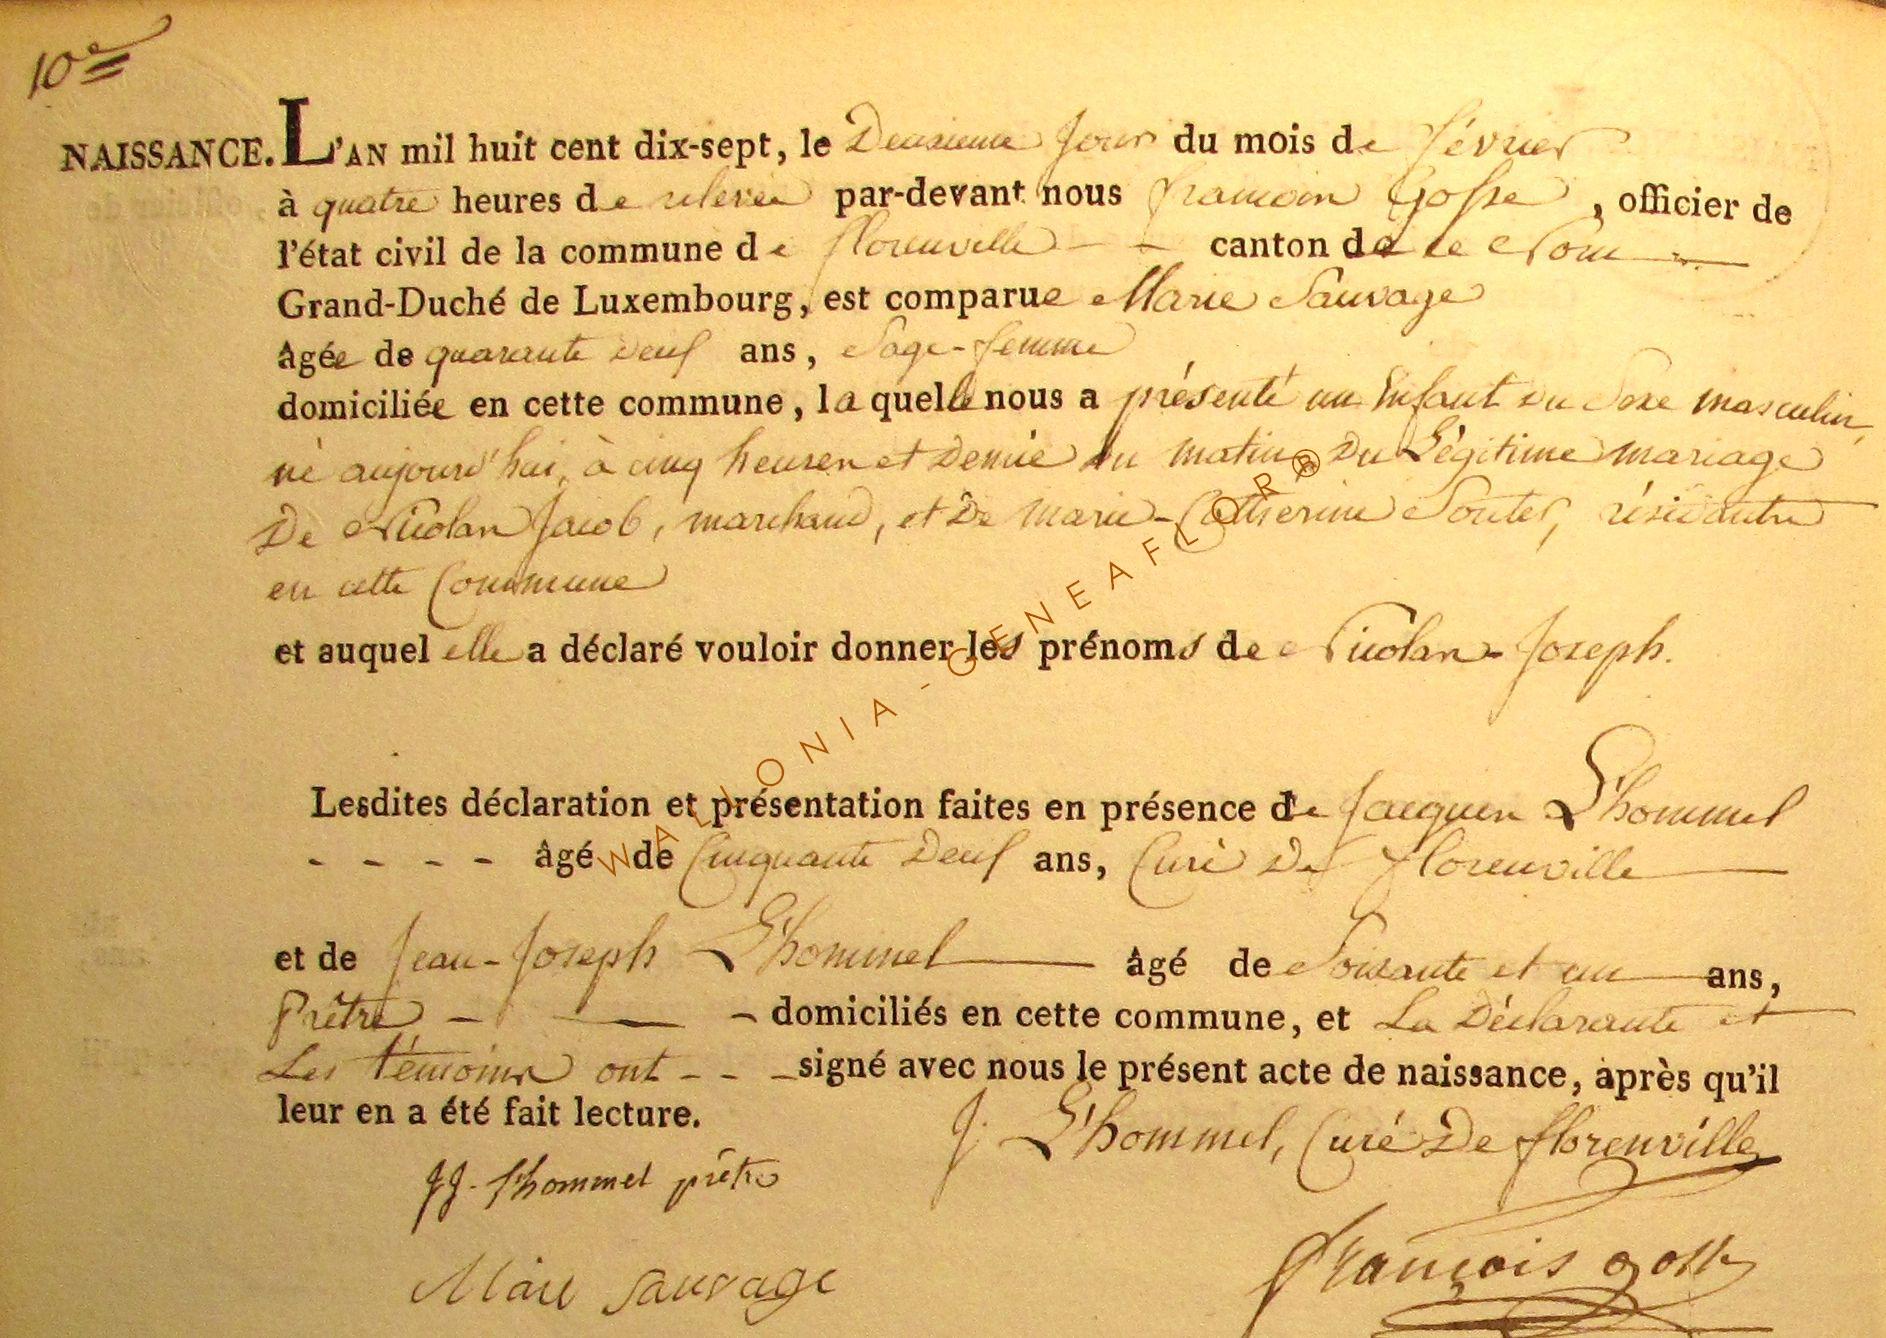 10e
NAISSANCE. L'AN mil huit cent dix-sept, le Deuxieme jour du mois de février
à quatre heures de relevée par-devant nous françois Gosse, officier de
l'état civil de la commune de florenville - - canton de
Grand-Duché de Luxembourg, est comparue Marie Sauvage
âgée de quarante neuf ans, Sage-femme
domiciliée en cette commune, laquelle nous a présenté un Enfant du Sexe masculin,
né aujourd'hui, à cinq heures et Demie du matin Du Légitime mariage
De Nicolas Jacob, marchand, et De marie-Catherine Souter, résidants
en cette Commune
et auquel elle a déclaré vouloir donner les prénoms de Nicolas-Joseph.
Lesdites déclaration et présentation faites en présence de Jacques L'hommel
- - - - âgé de Cinquante neuf ans, Curé De florenville
et de Jean-Joseph L'hommel âgé de Soixante et un ans,
Prêtre - - domiciliés en cette commune, et La Déclarante et
Les témoins ont - - - signé avec nous le présent acte de naissance, après qu'il
leur en a été fait lecture.
J. L'hommel, Curé De florenville
JJ. l'hommel prêtre
Marie Sauvage
françois gosse
WALLONIA-GENEAFLOR®